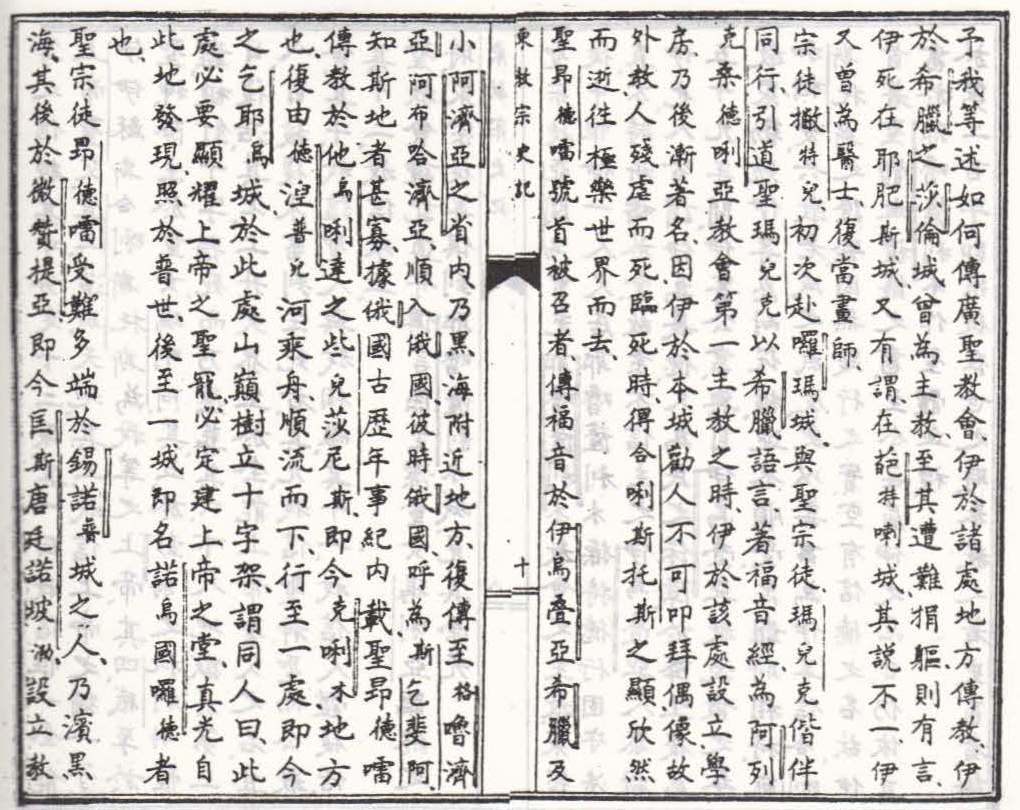 予我等述如何傳廣聖教會、伊於諸處地方傳教、伊
於希臘之莎倫城、曾為主教、至其遭難捐軀、則有言、
伊死在耶肥斯城、又有謂、在葩特喇城、其説不一、伊
又曾為醫士、復當畫師、
宗徒撇特兒、初次赴囉瑪城、與聖宗徒瑪兒克偕伴
同行、引道聖瑪兒克以希臘語言、著福音經、為阿列
克桑德唎亞教會第一主教之時、伊於該處設立學
房、乃後漸著名、因伊於本城勸人不可叩拜偶像、故
外教人殘虐而死、臨死時、得合唎斯托斯之顯、欣然
而逝、徃極樂世界而去、
聖昂德嚅號首被召者、傳福音於伊烏叠亞希臘及
東教宗史記
十
小阿濟亞之省内、乃黑海附近地方、復傳至格嚕濟
亞、阿布哈濟亞、順入俄國、彼時俄國、呼為斯乞斐阿
知斯地一者甚寡、據俄國古歷年事紀内、載聖昂德嚅
傳教於他烏唎達之些兒莎尼斯、即今克唎木地方
也、復由德湼普兒河乘舟、順流而下、行至一處、即今
之乞耶烏城、於此處山巔樹立十字架、謂同人曰、此
處必要顯耀上帝之聖寵、必定建上帝之堂、真光自
此地發現、照於普世、後至一城、即名諾烏國囉德者
也、
聖宗徒昂德嚅受難多端、於錫諾普城之人、乃濱黑
海、其後於微贊提亞、即今匡斯唐廷諾坡勒、設立教